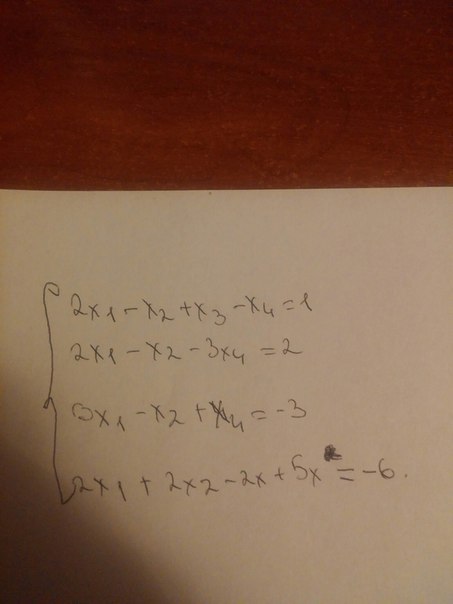 2x1 - x2 + x3 - x4 = 1
2x1 - x2 - 3x4 = 2
3x1 - x2 + x4 = -3
2x1 + 2x2 - 2x + 5x = -6.